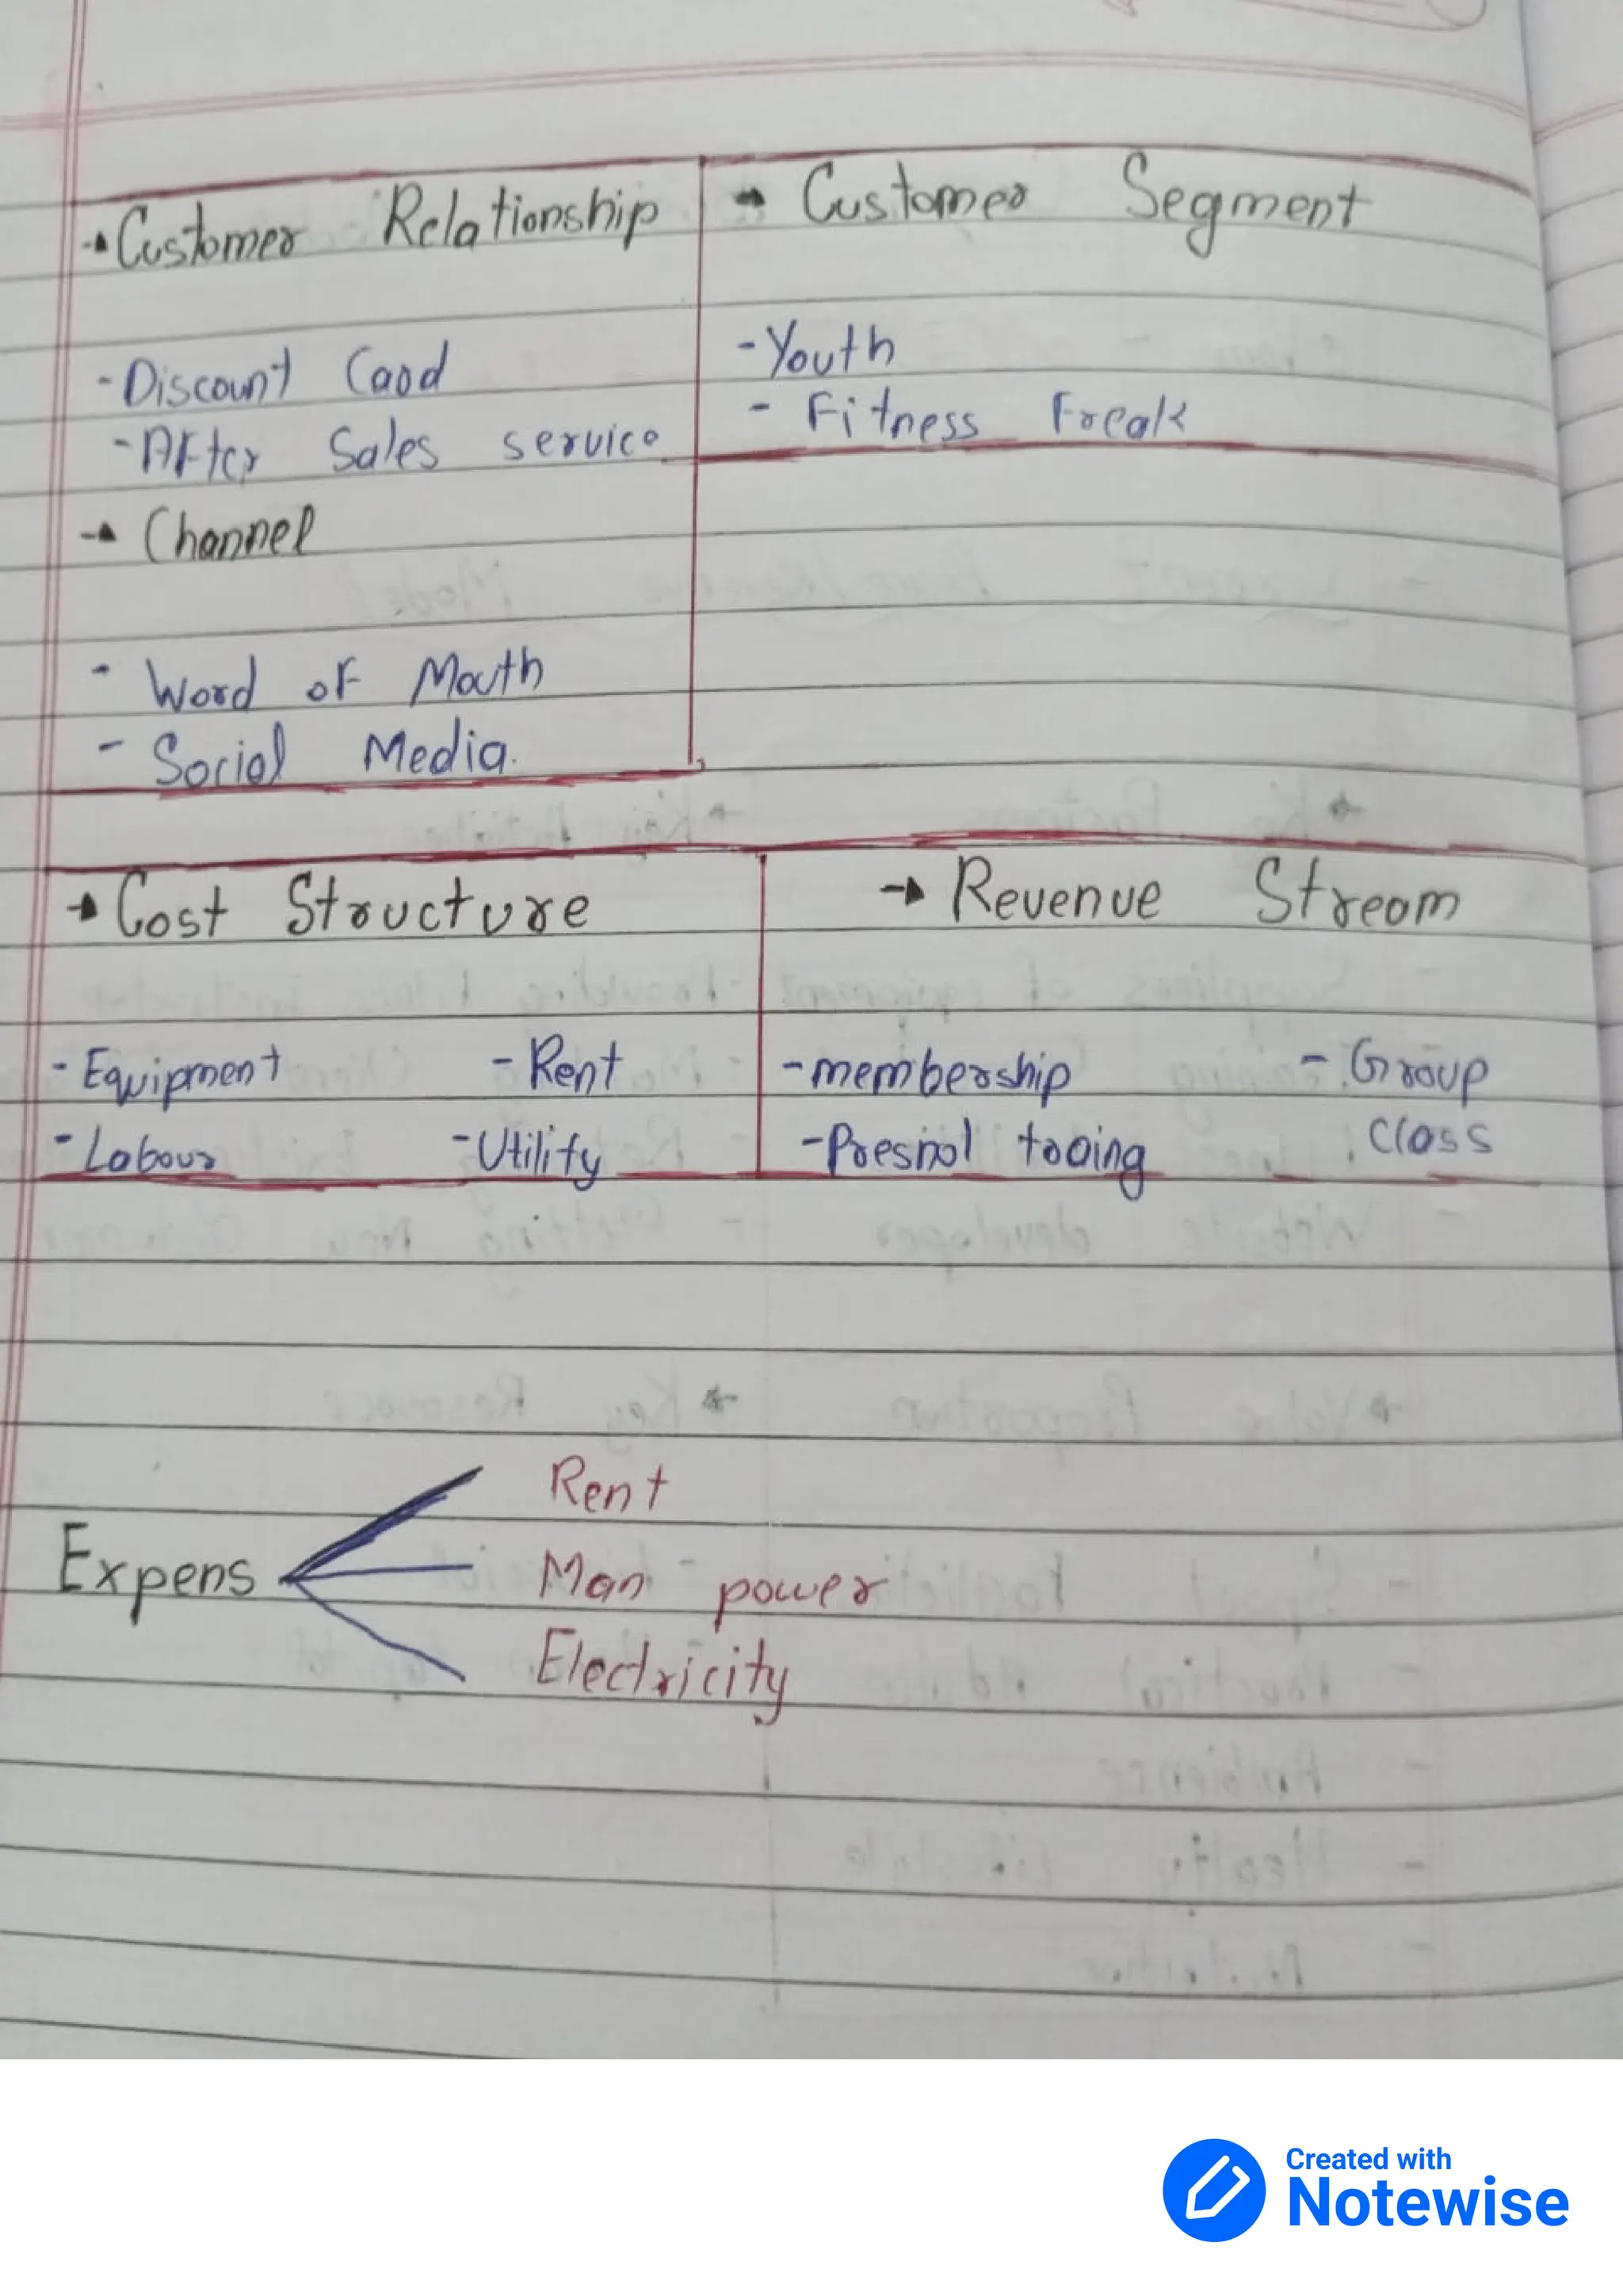 → Customer Relationship
- Discount Card
- After Sales service
→ Channel
- Word of Mouth
- Social Media.
→ Customer Segment
- Youth
- Fitness Freak
→ Cost Structure
- Equipment - Rent
- Labour - Utility
→ Revenue Stream
- membership - Group
- Presnol traing Class
Expens
Rent
Man power
Electricity
Created with
Notewise